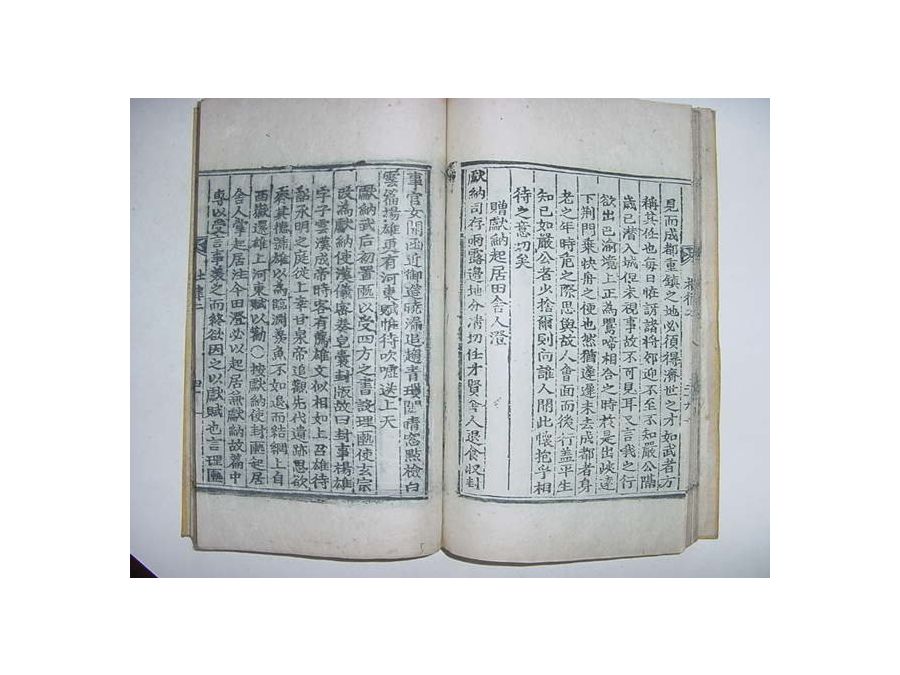 見而成都重鎮之地必須得濟世之才如武者方
稱其任也每日恠訪諸將邰迎不至不知嚴公隔
歲已潜入城但未視事故不可見耳又言我之行
欲出巴渝境上正為鸎啼相合之時於是出峽遠
下荆門乗快舟之便也然猶遲遲未去成都者身
老之年時危之際思與故人會面而後行盖平生
知己如嚴公者少捨爾則向誰人開此懷抱乎相
待之意切矣
贈獻納起居田舍人澄
獻納司存雨露邊地分清切任才賢舍人退食収封
事官女開函近御筵曉漏追趨青瑣闥晴窓點檢白
雲篇揚雄更有河東賦惟待吹噓送上天
獻納武后初置匭以受四方之書設理匭使玄宗
改為獻納使漢儀密奏皂囊封版故曰封事揚雄
字子雲漢成帝時客有薦雄文似相如上召雄待
詔承明之庭從上幸甘泉帝追觀先代遺跡思欲
齊其德號雄以為臨淵羡魚不如退而結網上自
西嶽還雄上河東賦以勸○按獻納使封匭起居
舍人掌起居注今田澄必以起居無獻納故篇中
專以受言事美之而終欲因之以獻賦也言理匭
杜律二